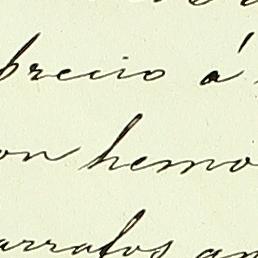 precio á
on hemo
arrafos an